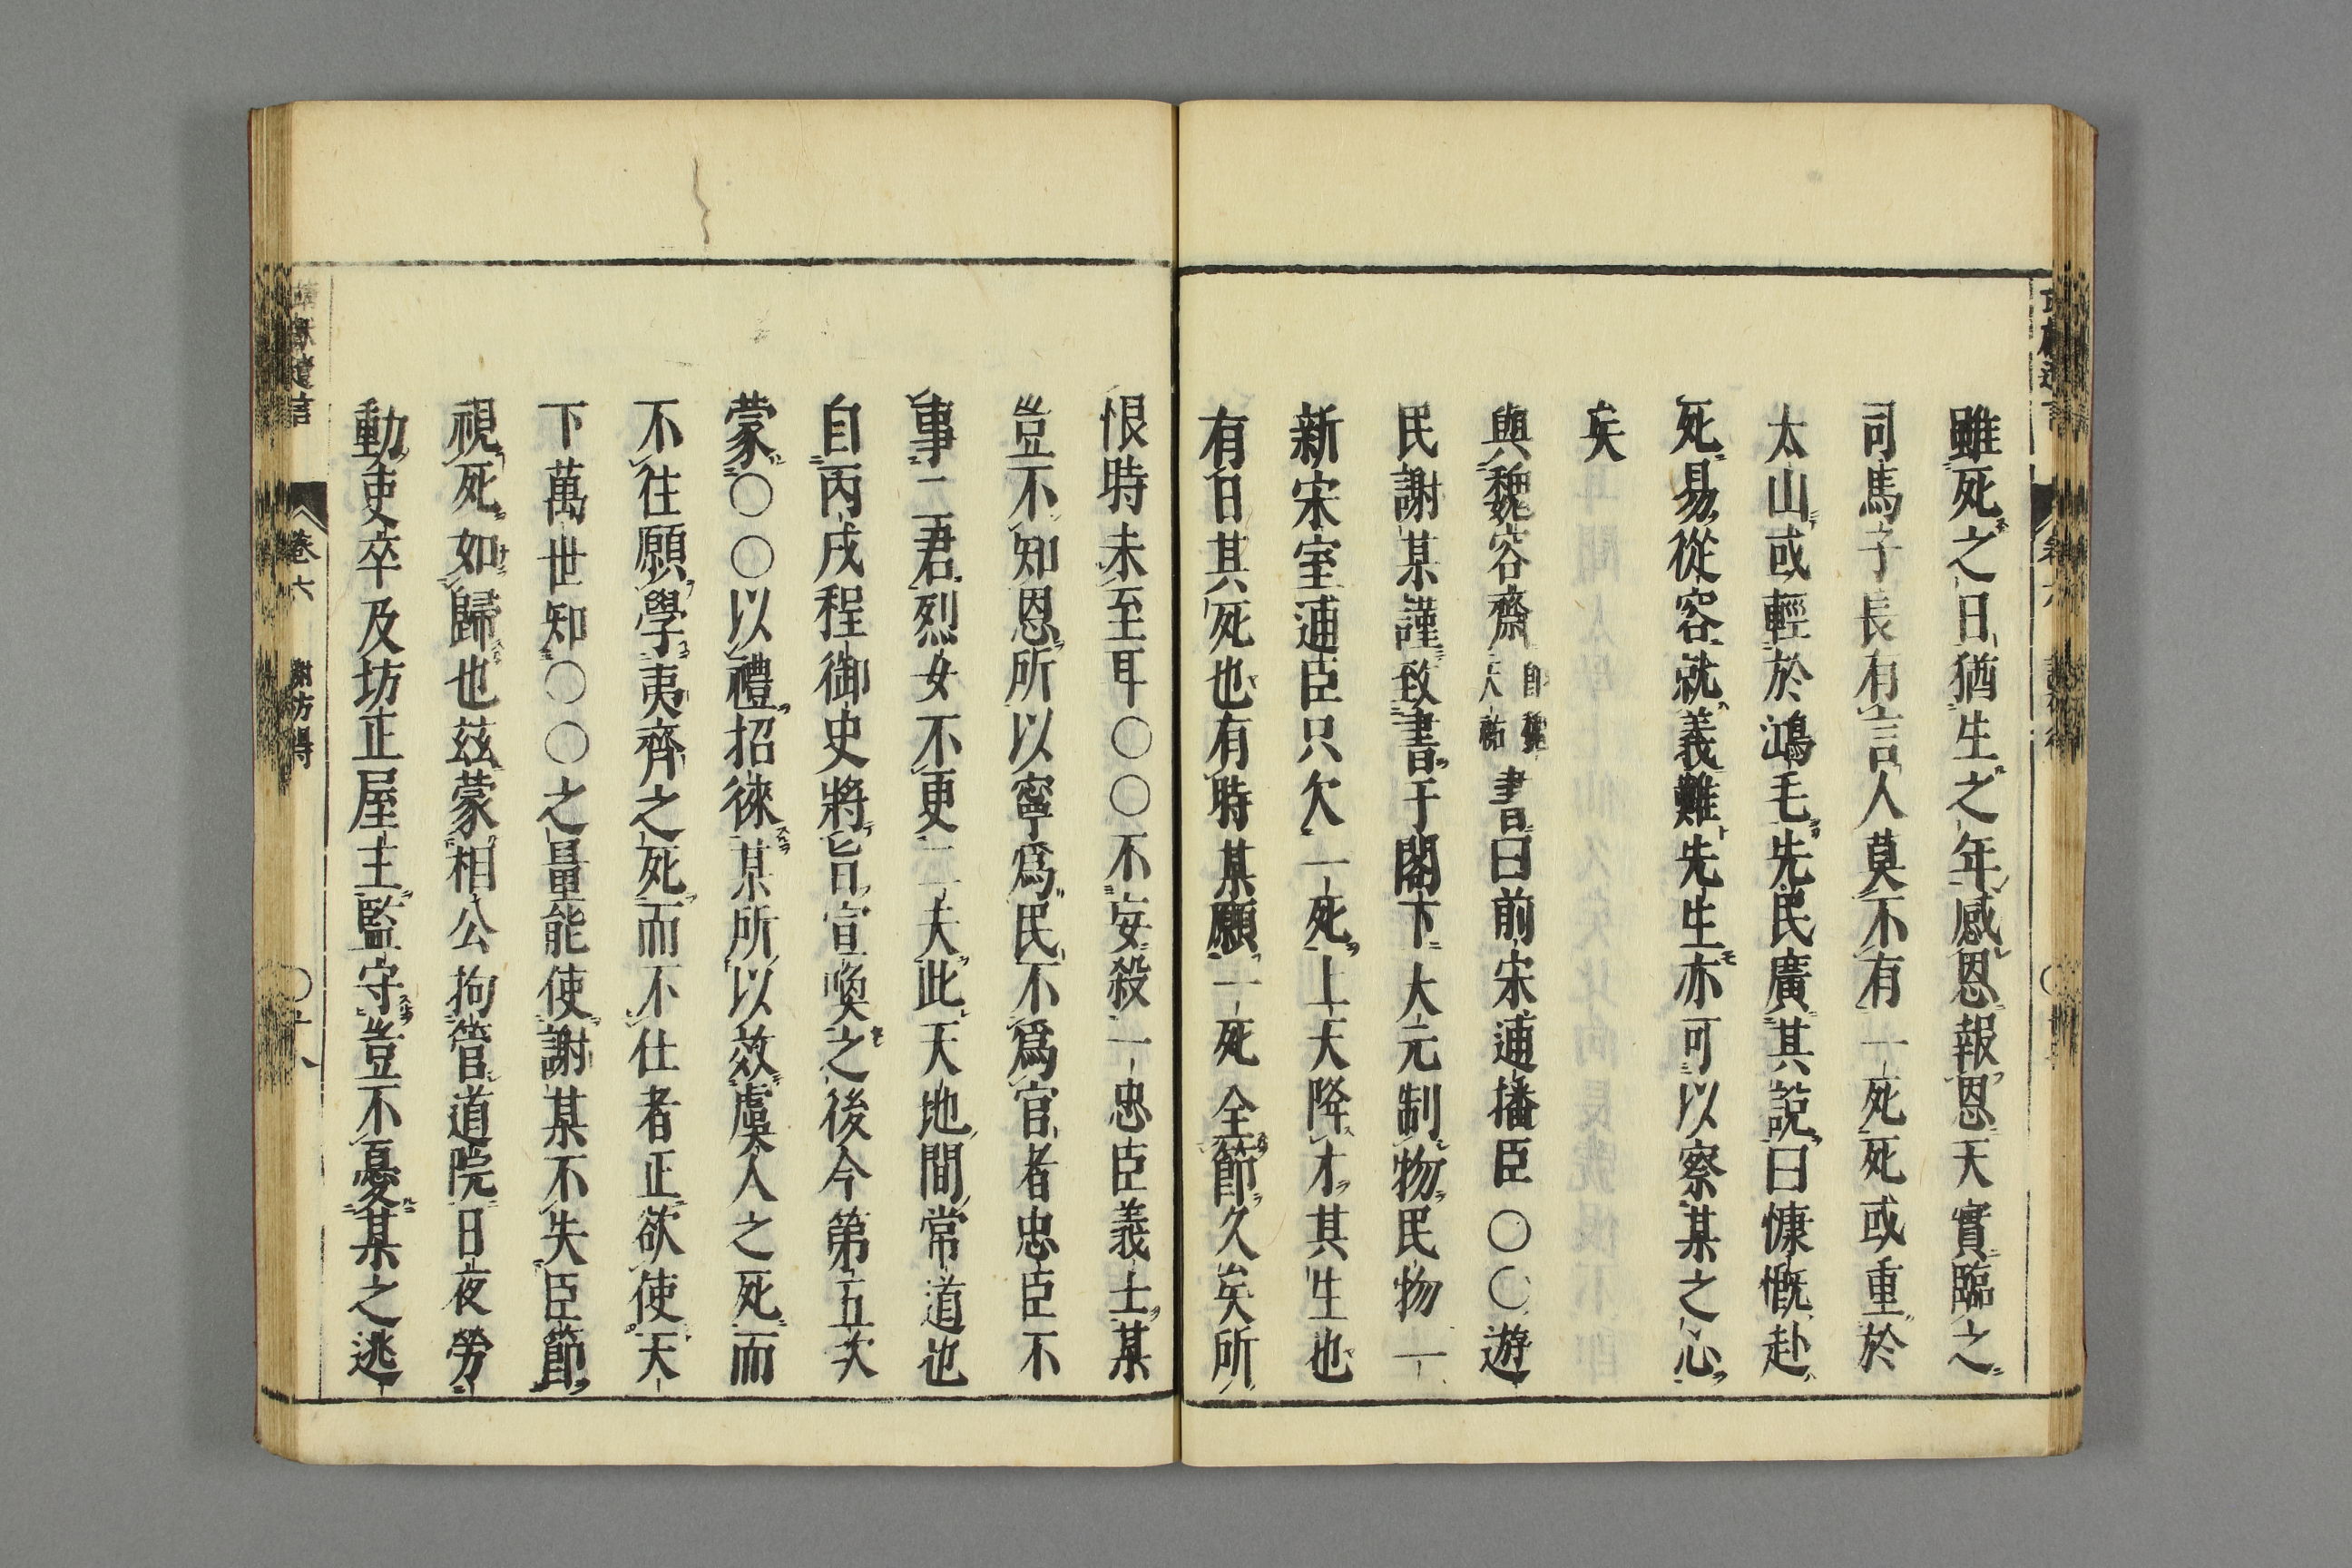 雖死之日猶生之年感恩報恩天實臨之
司馬子長有言人莫不有一死死或重於
太山或輕於鴻毛先民廣其說曰慷慨赴
死易從容就義難先生亦可以察某之心
矣
與魏容齋自魏天祐書曰前宋逋播臣〇〇遊
民謝某謹致書于閣下大元制物民物一
新宋室逋臣只欠一死上天降才其生也
有日其死也有時某願一死全節久矣所
恨時未至耳〇〇不妄殺一忠臣義士某
豈不知恩所以寧爲民不爲官者忠臣不
事二君烈女不更二夫此天地間常道也
自丙戌程御史將旨宣喚之後今第五次
蒙〇〇以禮招徠某所以效虞人之死而
不往願學夷齊之死而不仕者正欲使天
下萬世知〇〇之量能使謝某不失臣節
視死如歸也茲蒙相公拘管道院日夜勞
動吏卒及坊正屋主監守豈不憂某之逃
遺言 卷六 謝枋得 〇十八